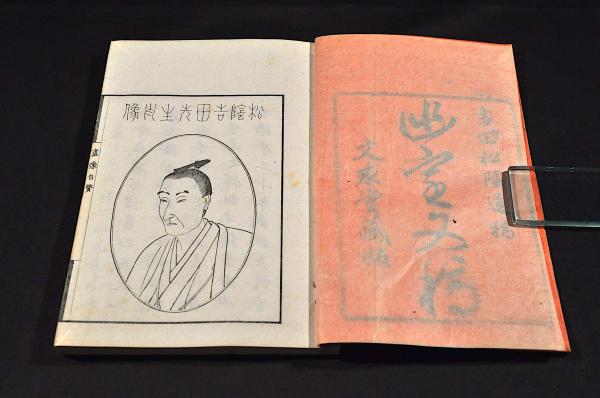 吉田松陰遺稿
幽室文稿
文求堂藏板
松陰吉田先生肖像
畫像自贊